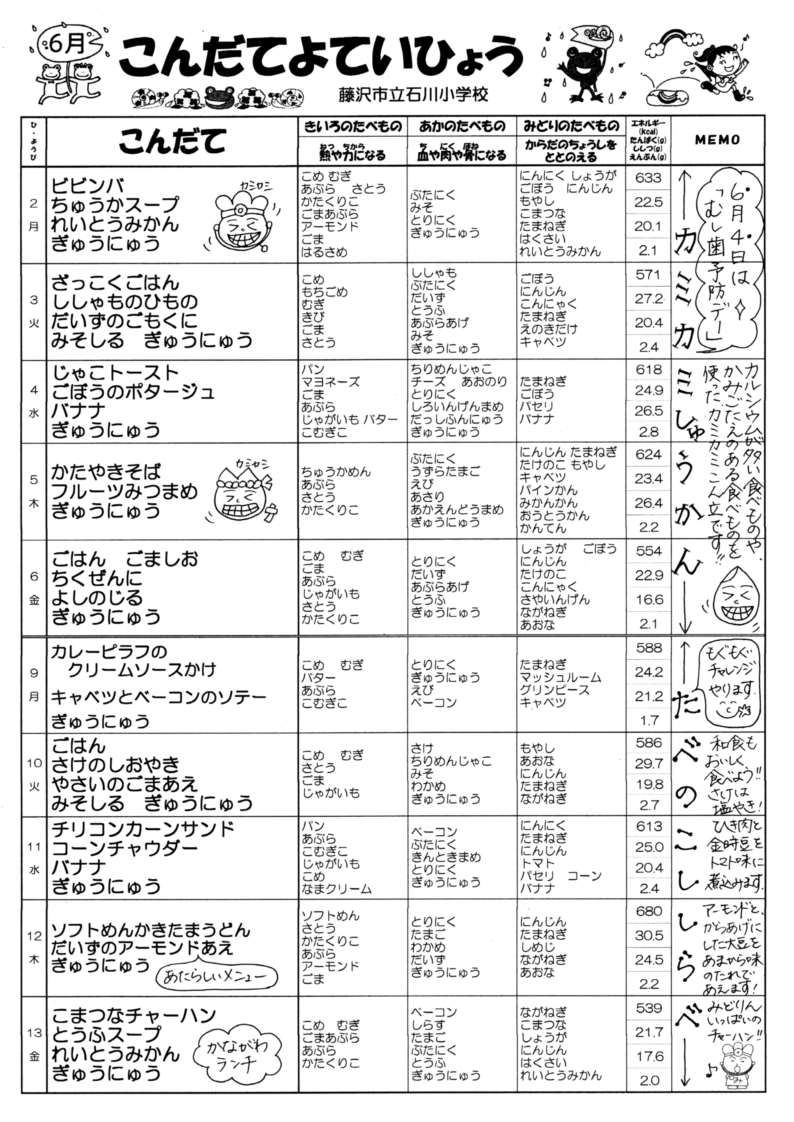 6月
こんだてよていひょう
藤沢市立石川小学校
ひ・ようび
こんだて
きいろのたべもの
熱や力になる
ねつ ちから
あかのたべもの
血や肉や骨になる
ち にく ほね
みどりのたべもの
からだのちょうしを
ととのえる
エネルギー
(Kcal)
たんぱく(g)
ししつ(g)
えんぶん(g)
MEMO
2
月
ビビンバ
ちゅうかスープ
れいとうみかん
ぎゅうにゅう
カミカミ
こめ むぎ
あぶら さとう
かたくりこ
ごまあぶら
アーモンド
ごま
はるさめ
ぶたにく
みそ
とりにく
ぎゅうにゅう
にんにく しょうが
ごぼう にんじん
もやし
こまつな
たまねぎ
はくさい
れいとうみかん
633
22.5
20.1
2.1
6月4日は
「むし歯
予防デー」
カミカミしゅうかん
3
火
ざっこくごはん
ししゃものひもの
だいずのごもくに
みそしる ぎゅうにゅう
こめ
もちごめ
むぎ
きび
ごま
さとう
ししゃも
ぶたにく
だいず
とうふ
あぶらあげ
みそ
ぎゅうにゅう
ごぼう
にんじん
こんにゃく
たまねぎ
えのきだけ
キャベツ
571
27.2
20.4
2.4
4
水
じゃこトースト
ごぼうのポタージュ
バナナ
ぎゅうにゅう
パン
マヨネーズ
ごま
あぶら
じゃがいも バター
こむぎこ
ちりめんじゃこ
チーズ あおのり
とりにく
しろいんげんまめ
だっしふんにゅう
ぎゅうにゅう
たまねぎ
ごぼう
パセリ
バナナ
618
24.9
26.5
2.8
カルシウムが多い食べものや、
かみごたえのある食べものを
使ったカミカミこん立です!!
5
木
かたやきそば
フルーツみつまめ
ぎゅうにゅう
カミカミ
ちゅうかめん
あぶら
さとう
かたくりこ
ぶたにく
うずらたまご
えび
あさり
あかえんどうまめ
ぎゅうにゅう
にんじん たまねぎ
たけのこ もやし
キャベツ
パインかん
みかんかん
おうとうかん
かんてん
624
23.4
26.4
2.2
6
金
ごはん ごましお
ちくぜんに
よしのじる
ぎゅうにゅう
こめ むぎ
ごま
あぶら
じゃがいも
さとう
かたくりこ
とりにく
だいず
あぶらあげ
とうふ
ぎゅうにゅう
しょうが ごぼう
にんじん
たけのこ
こんにゃく
さやいんげん
ながねぎ
あおな
554
22.9
16.6
2.1
9
月
カレーピラフの
クリームソースかけ
キャベツとベーコンのソテー
ぎゅうにゅう
こめ むぎ
バター
あぶら
こむぎこ
とりにく
ぎゅうにゅう
えび
ベーコン
たまねぎ
マッシュルーム
グリンピース
キャベツ
588
24.2
21.2
1.7
もぐもぐ
チャレンジ
やります
たべのこししらべ
10
火
ごはん
さけのしおやき
やさいのごまあえ
みそしる ぎゅうにゅう
こめ むぎ
さとう
ごま
じゃがいも
さけ
ちりめんじゃこ
みそ
わかめ
ぎゅうにゅう
もやし
あおな
にんじん
たまねぎ
ながねぎ
586
29.7
19.8
2.7
和食も
おいしく
食べよう!!
さけは
塩やき!
11
水
チリコンカーンサンド
コーンチャウダー
バナナ
ぎゅうにゅう
パン
あぶら
こむぎこ
じゃがいも
こめ
なまクリーム
ベーコン
ぶたにく
きんときまめ
とりにく
ぎゅうにゅう
にんにく
たまねぎ
にんじん
トマト
パセリ コーン
バナナ
613
25.0
20.4
2.4
ひき肉と
金時豆を
トマト味に
煮込みます
12
木
ソフトめんかきたまうどん
だいずのアーモンドあえ
ぎゅうにゅう
あたらしいメニュー
ソフトめん
さとう
かたくりこ
あぶら
アーモンド
ごま
とりにく
たまご
わかめ
だいず
ぎゅうにゅう
にんじん
たまねぎ
しめじ
ながねぎ
あおな
680
30.5
24.5
2.2
アーモンドと、
からあげに
した大豆を
あまから味
のたれで
あえます!
13
金
こまつなチャーハン
とうふスープ
れいとうみかん
ぎゅうにゅう
かながわ
ランチ
こめ むぎ
ごまあぶら
あぶら
かたくりこ
ベーコン
しらす
たまご
ぶたにく
とうふ
ぎゅうにゅう
ながねぎ
こまつな
しょうが
にんじん
はくさい
れいとうみかん
539
21.7
17.6
2.0
みどりん
いっぱいの
チャーハン!!
み